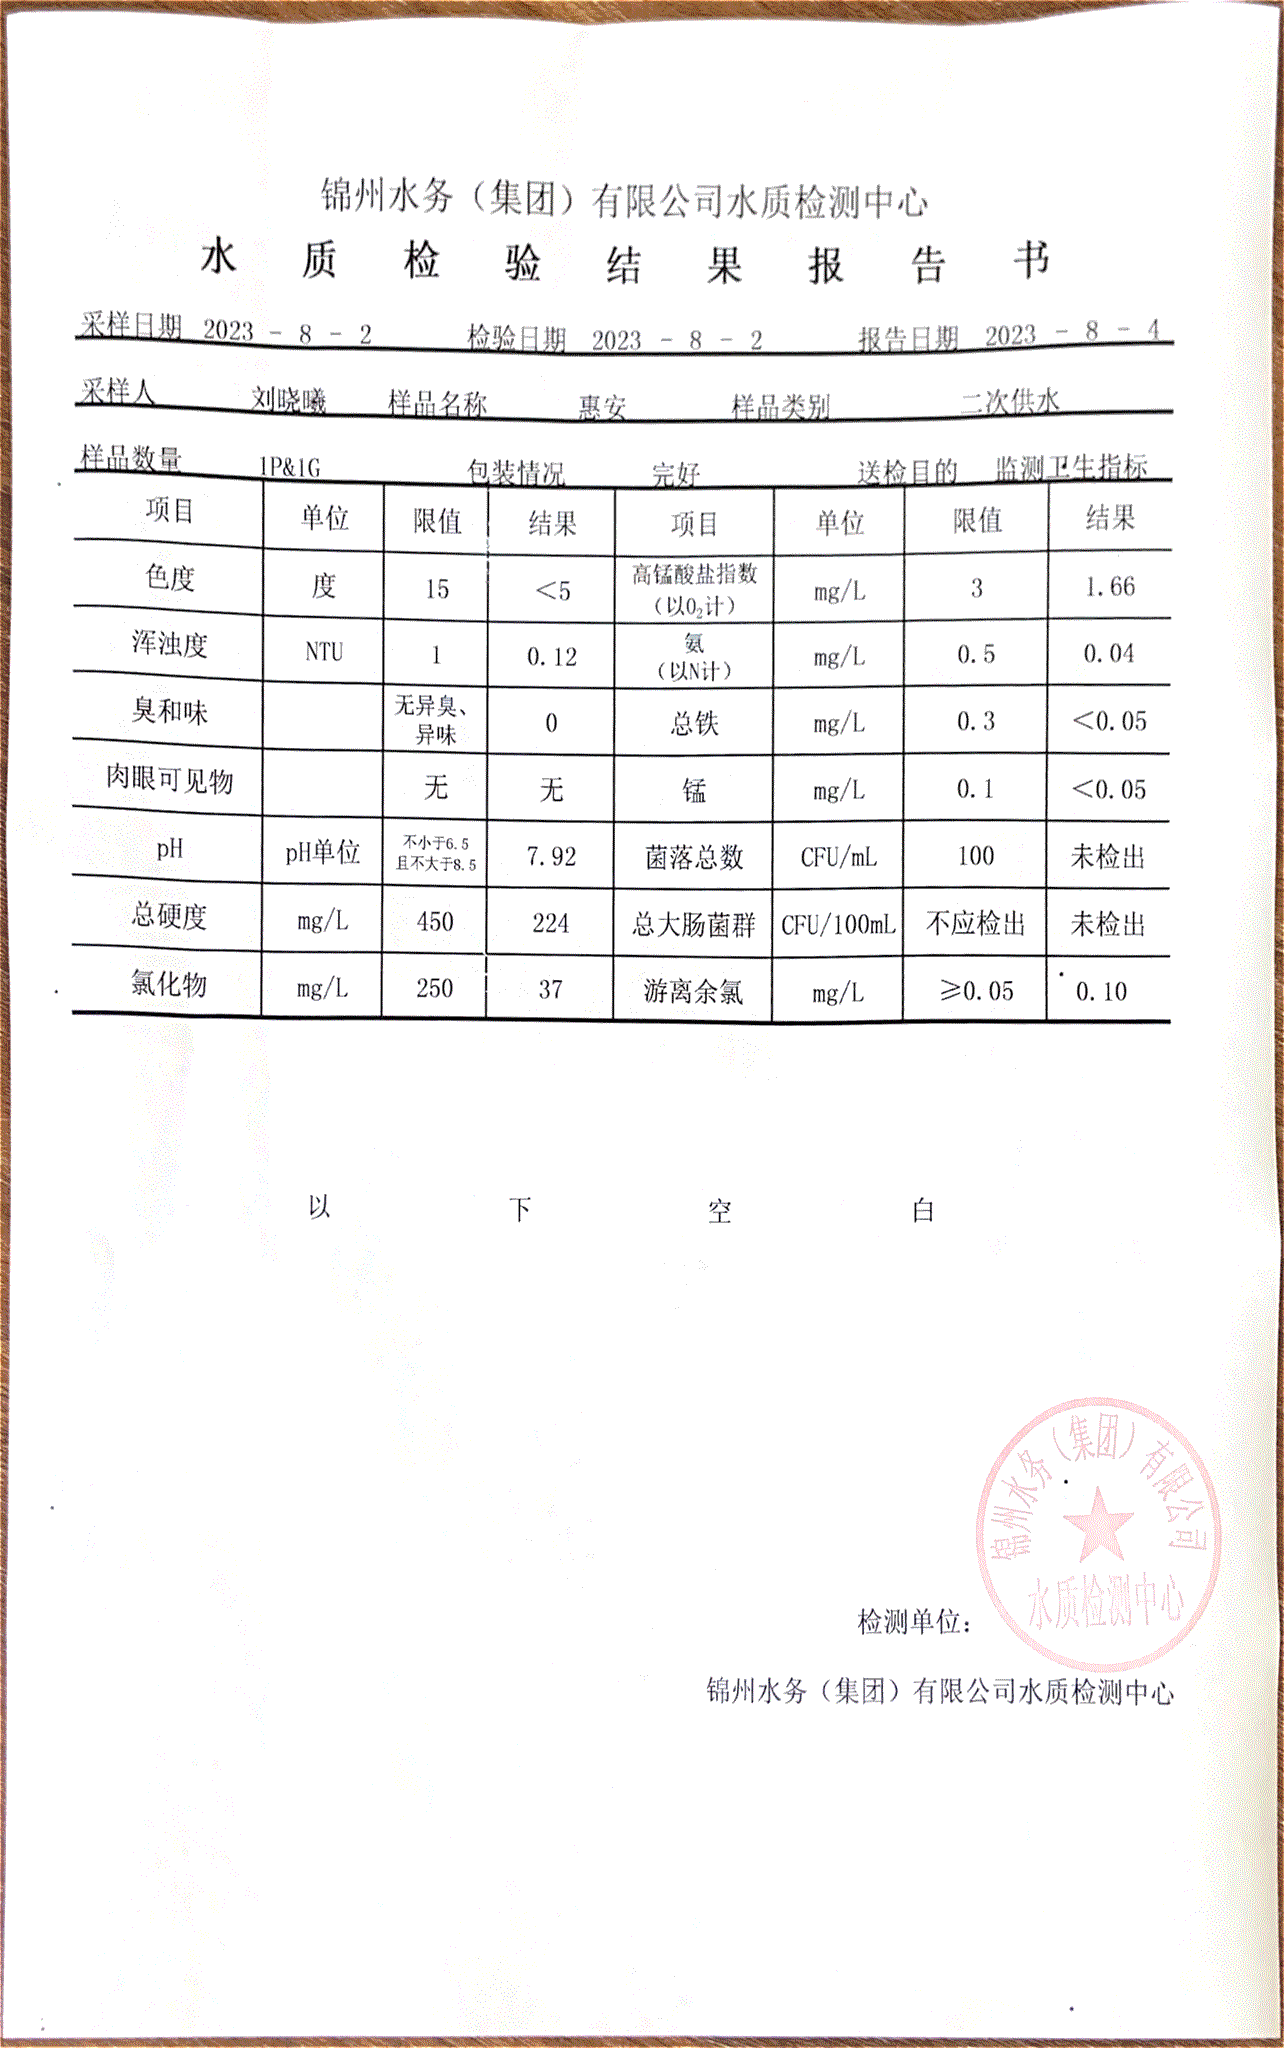 锦州水务（集团）有限公司水质检测中心
水质检验结果报告书
采样日期 2023 - 8 - 2 检验日期 2023 - 8 - 2 报告日期 2023 - 8 - 4
采样人 刘晓曦 样品名称 惠安 样品类别 二次供水
样品数量 1P&1G 包装情况 完好 送检目的 监测卫生指标
项目 单位 限值 结果 项目 单位 限值 结果
色度 度 15 <5 高锰酸盐指数（以O₂计） mg/L 3 1.66
浑浊度 NTU 1 0.12 氨（以N计） mg/L 0.5 0.04
臭和味 无异臭、异味 0 总铁 mg/L 0.3 <0.05
肉眼可见物 无 无 锰 mg/L 0.1 <0.05
pH pH单位 不小于6.5且不大于8.5 7.92 菌落总数 CFU/mL 100 未检出
总硬度 mg/L 450 224 总大肠菌群 CFU/100mL 不应检出 未检出
氯化物 mg/L 250 37 游离余氯 mg/L ≥0.05 0.10
以下空白
锦州水务（集团）有限公司
水质检测中心
检测单位：
锦州水务（集团）有限公司水质检测中心